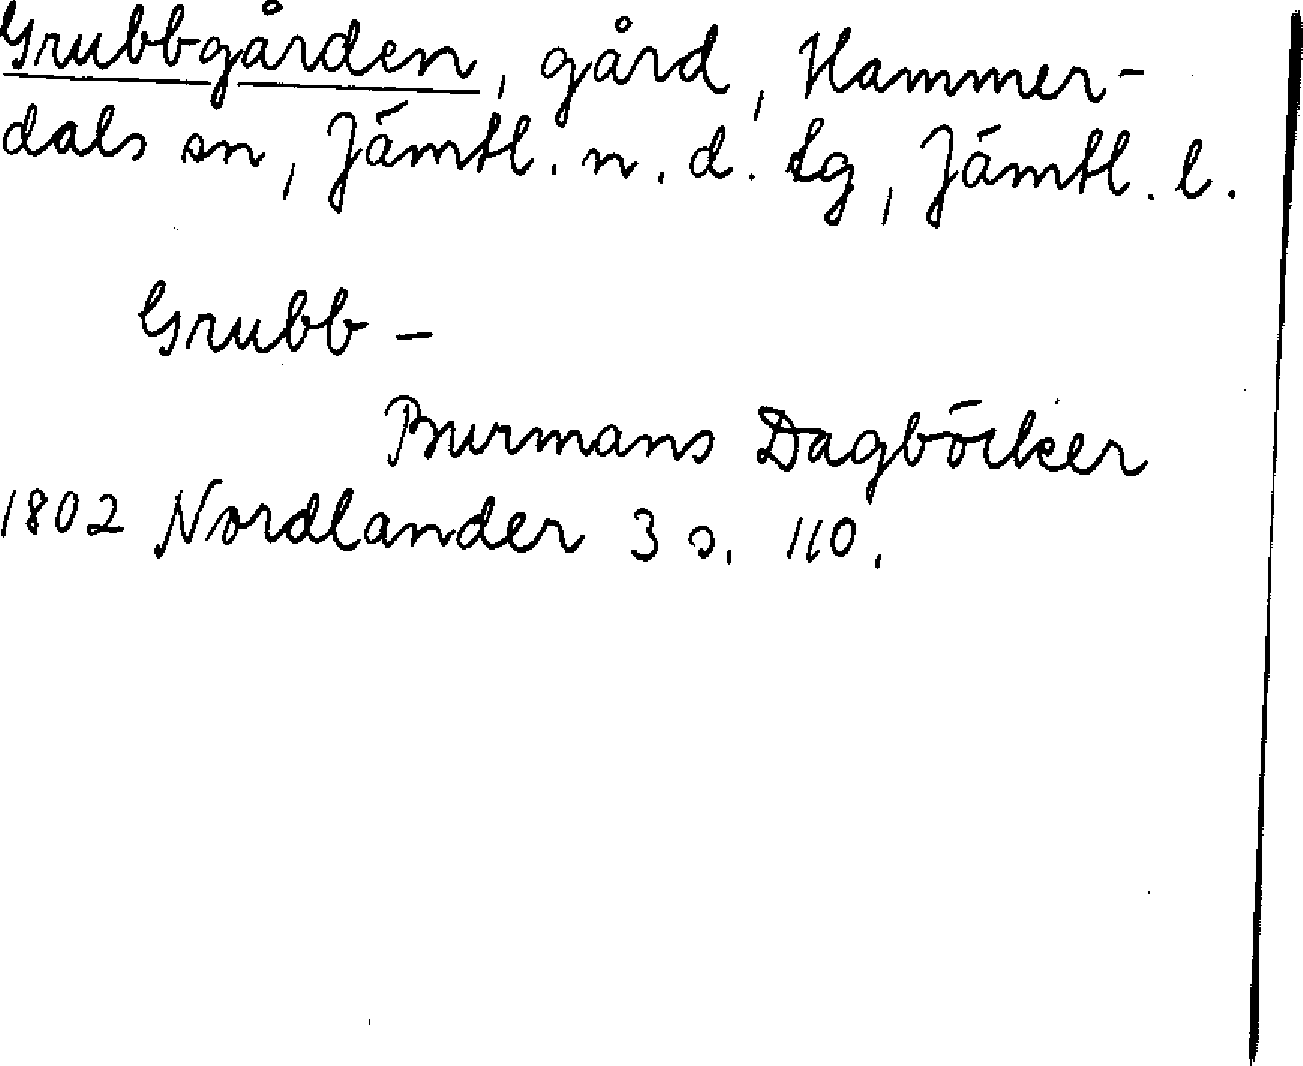 Grubbgården, gård, Hammer-
dals sn, Jämtl. n. d. tg, Jämtl. l.
Grubb -
Burmans Dagböcker
1802 Nordlander 3 s. 110.